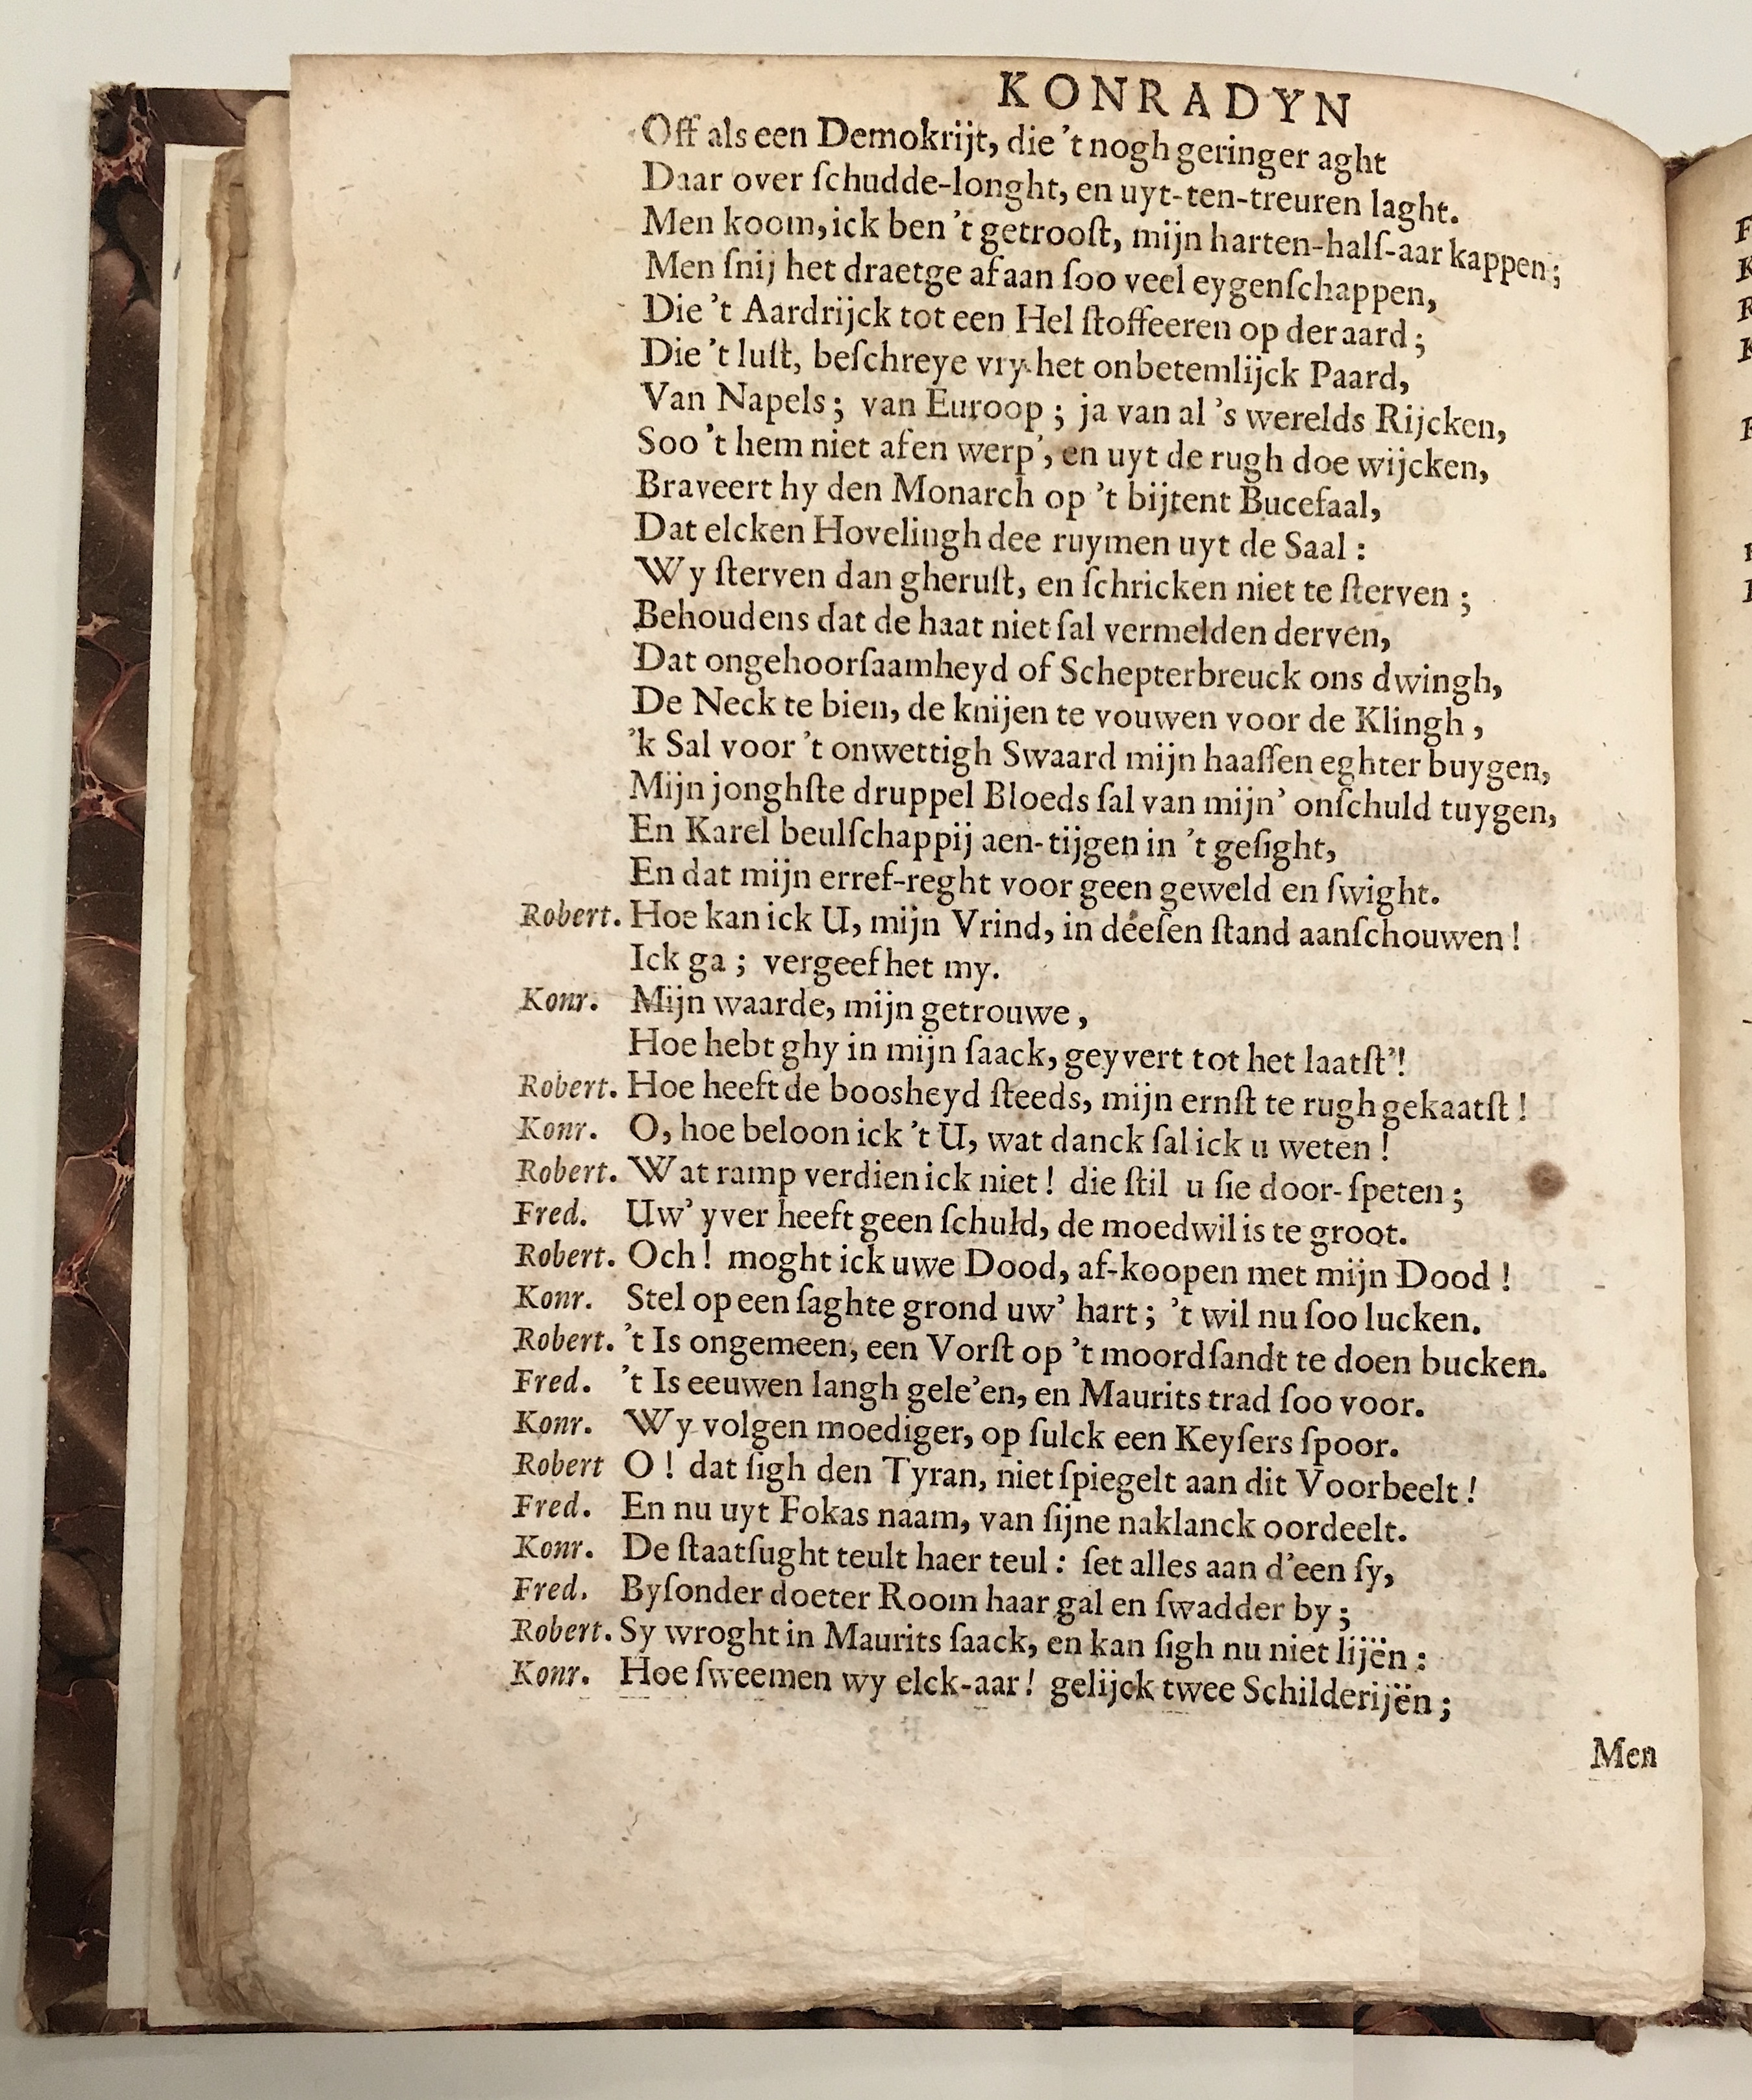 KONRADYN
Off als een Demokrijt, die 't nogh geringer aght
Daar over ſchudde-longht, en uyt-ten-treuren laght.
Men koom, ick ben 't getrooſt, mijn harten-halſ-aar kappen;
Men ſnij het draetge af aan ſoo veel eygenſchappen,
Die 't Aardrijck tot een Hel ſtoffeeren op der aard;
Die 't luſt, beſchreye vry het onbetemlijck Paard,
Van Napels; van Euroop; ja van al 's werelds Rijcken,
Soo 't hem niet af en werp', en uyt de rugh doe wijcken,
Braveert hy den Monarch op 't bijtent Bucefaal,
Dat elcken Hovelingh dee ruymen uyt de Saal:
Wy ſterven dan gheruſt, en ſchricken niet te ſterven;
Behoudens dat de haat niet ſal vermelden derven,
Dat ongehoorſaamheyd of Schepterbreuck ons dwingh,
De Neck te bien, de knijen te vouwen voor de Klingh,
'k Sal voor 't onwettigh Swaard mijn haaſſen eghter buygen,
Mijn jonghſte druppel Bloeds ſal van mijn' onſchuld tuygen,
En Karel beulſchappij aen-tijgen in 't geſight,
En dat mijn erref-reght voor geen geweld en ſwight.
Robert. Hoe kan ick U, mijn Vrind, in déeſen ſtand aanſchouwen!
Ick ga; vergeef het my.
Konr. Mijn waarde, mijn getrouwe,
Hoe hebt ghy in mijn ſaack, geyvert tot het laatſt'!
Robert. Hoe heeft de boosheyd ſteeds, mijn ernſt te rugh gekaatſt!
Konr. O, hoe beloon ick 't U, wat danck ſal ick u weten!
Robert. Wat ramp verdien ick niet! die ſtil u ſie door-ſpeten;
Fred. Uw' yver heeft geen ſchuld, de moedwil is te groot.
Robert. Och! moght ick uwe Dood, af-koopen met mijn Dood!
Konr. Stel op een ſaghte grond uw' hart; 't wil nu ſoo lucken.
Robert. 't Is ongemeen, een Vorſt op 't moordſandt te doen bucken.
Fred. 't Is eeuwen langh gele'en, en Maurits trad ſoo voor.
Konr. Wy volgen moediger, op ſulck een Keyſers ſpoor.
Robert O! dat ſigh den Tyran, niet ſpiegelt aan dit Voorbeelt!
Fred. En nu uyt Fokas naam, van ſijne naklanck oordeelt.
Konr. De ſtaatſught teult haer teul: ſet alles aan d'een ſy,
Fred. Byſonder doeter Room haar gal en ſwadder by;
Robert. Sy wroght in Maurits ſaack, en kan ſigh nu niet lijën:
Konr. Hoe ſweemen wy elck-aar! gelijck twee Schilderijën;
Men